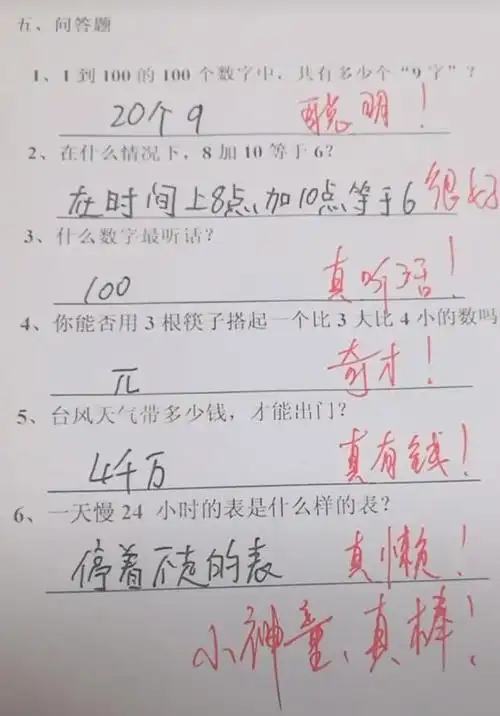 五、问答题
1、1到100的100个数字中，共有多少个“9字”？
20个9 聪明！
2、在什么情况下，8加10等于6？
在时间上8点加10点等于6 很好
3、什么数字最听话？
100 真听话！
4、你能否用3根筷子搭起一个比3大比4小的数吗
π 奇才！
5、台风天气带多少钱，才能出门？
4千万 真有钱！
6、一天慢24 小时的表是什么样的表？
停着不走的表 真懒！
小神童、真棒！